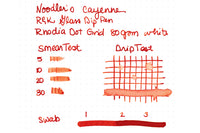 Noodler's Cayenne
R&K Glass Dip Pen
Rhodia Dot Grid 80gram white
Smear Test Drip Test
5
10
20
30
Swab 1 2 3